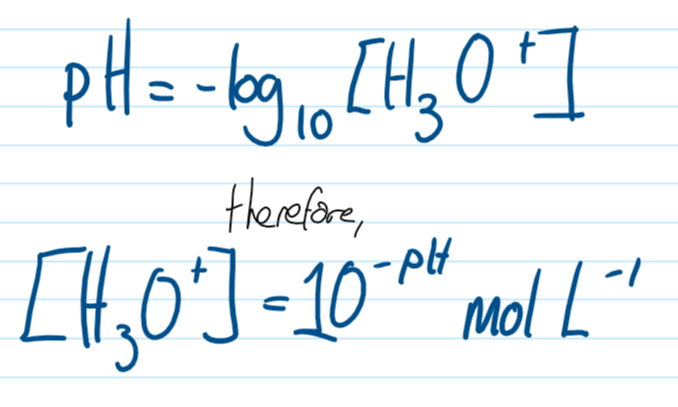 pH = -log₁₀ [H₃O⁺]
therefore,
[H₃O⁺] = 10⁻ᵖᴴ mol L⁻¹